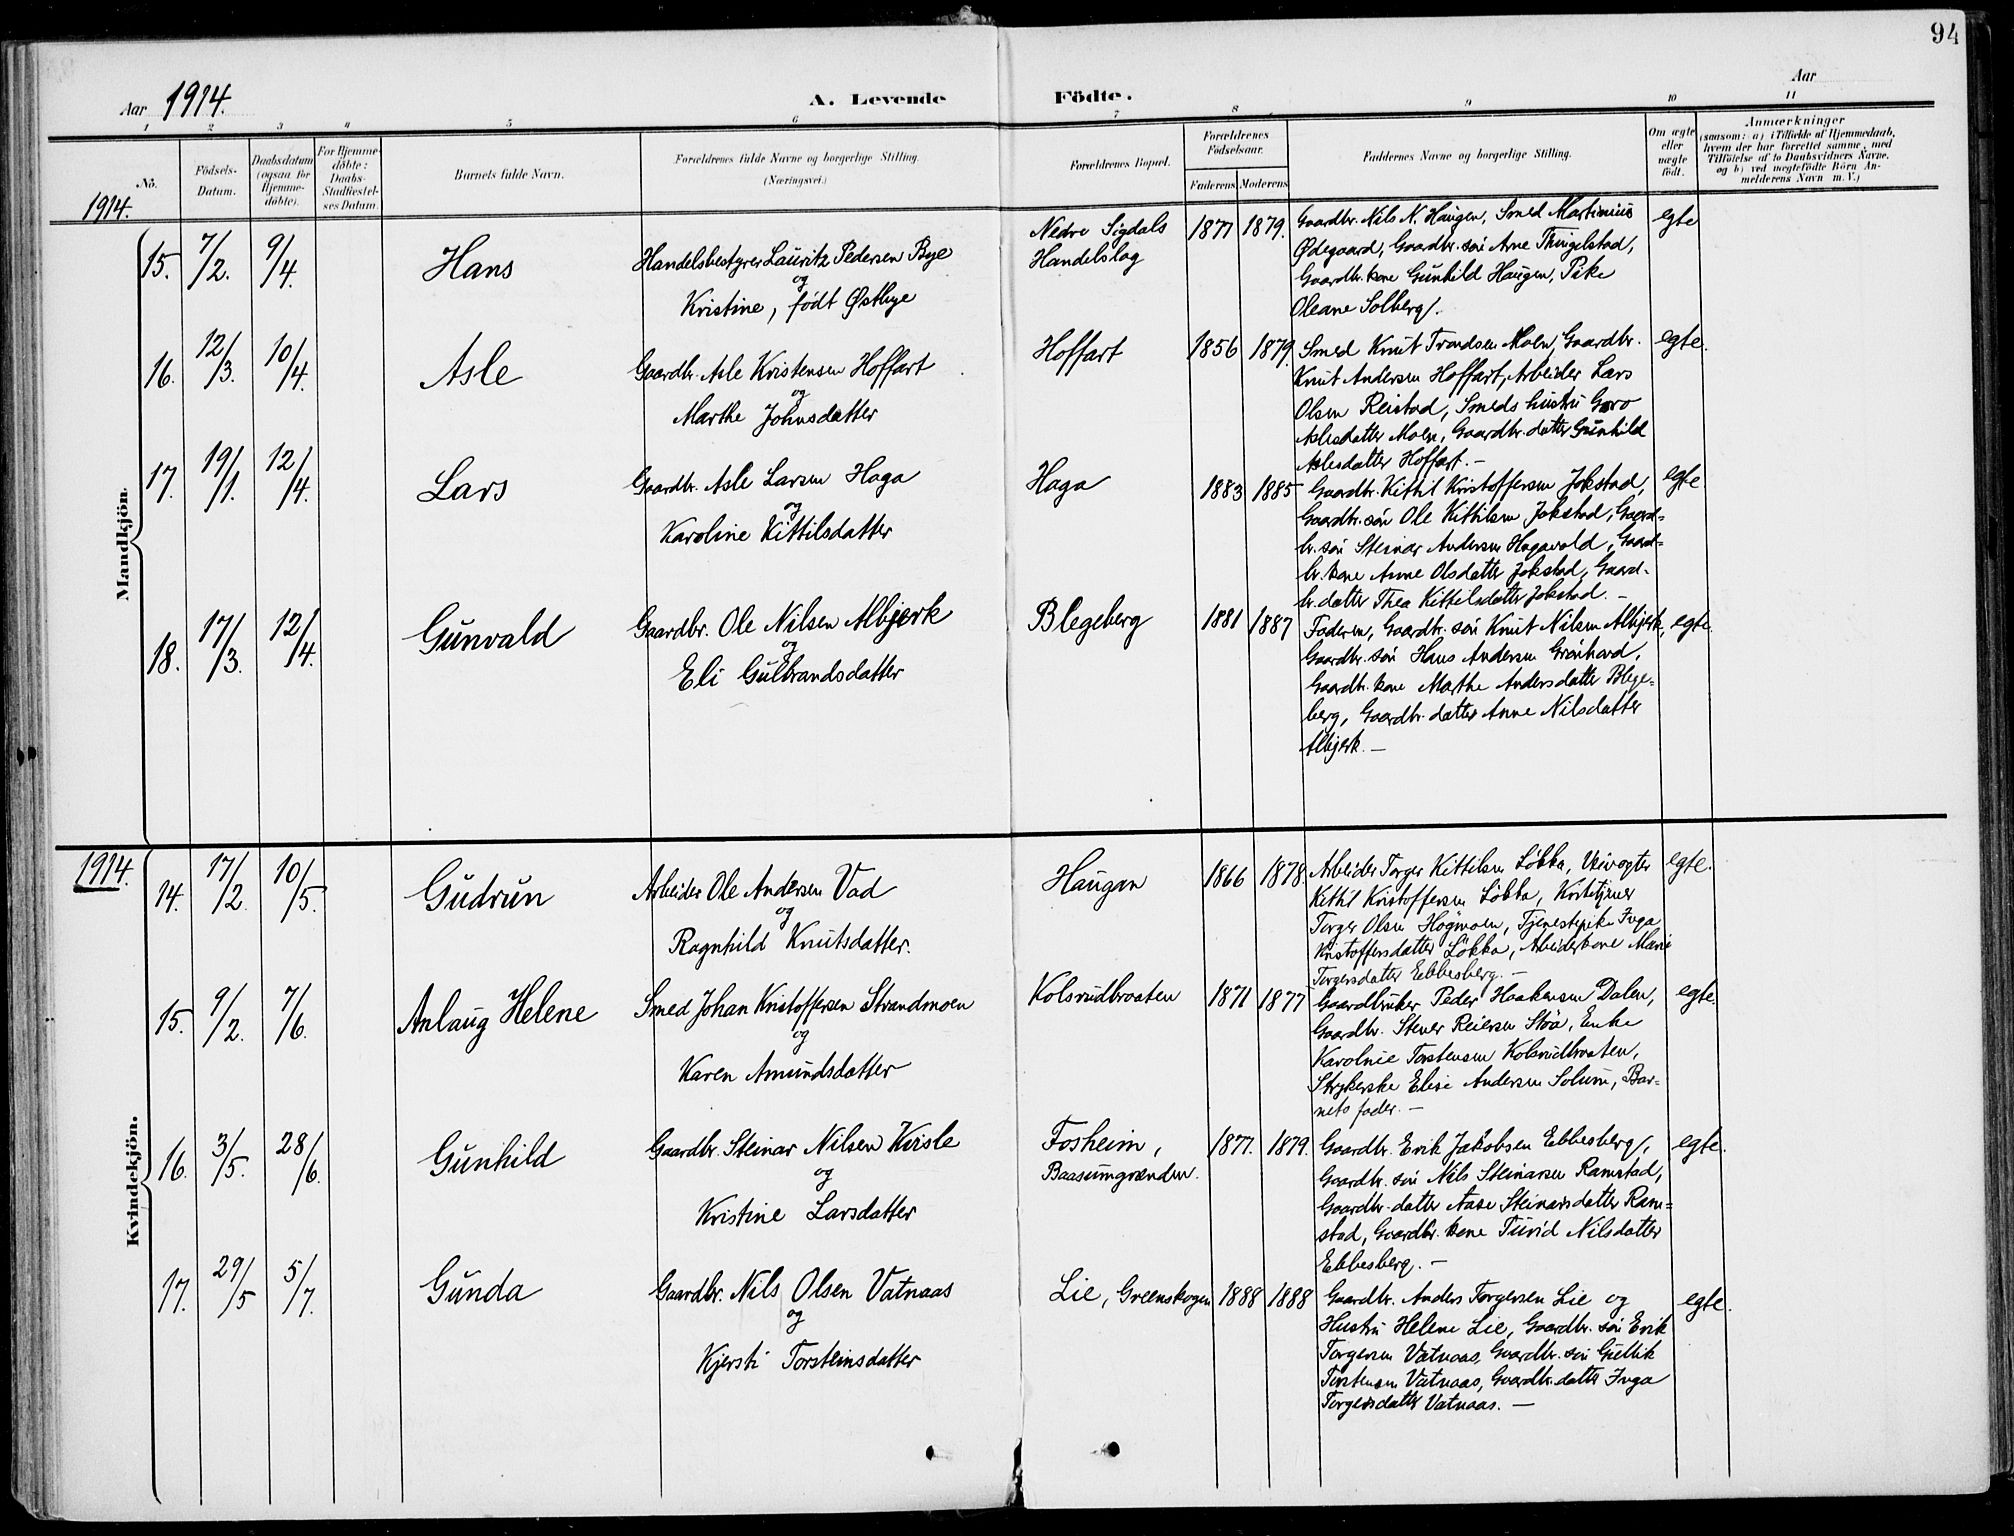 94
Aar 1914.
A. Levende Födte.
Aar
1 2 3 4 5 6 7 8 9 10 11
No.
Födsels-Datum.
Daabsdatum (ogsaa for Hjemme-döbte).
For Hjemme-döbte: Daabs-Stadfæstel-ses Datum.
Barnets fulde Navn.
Forældrenes fulde Navne og borgerlige Stilling. (Næringsvei.)
Forældrenes Bopæl.
Forældrenes Födselsaar.
Faderens Moderens
Faddernes Navne og borgerlige Stilling.
Om ægte eller uægte födt.
Anmærkninger
(saasom: a) i Tilfælde af Hjemmedaab,
hvem der har forrettet samme, med
Tilföielse af to Daabsvidners Navne,
og b) ved uægtefödte Börn An-
melderens Navn m. V.)
1914.
Mandkjön.
15. 7/2. 9/4. Hans
Handelsbestyrer Lauritz Pedersen Bye
og
Kristine, født Østbye
Nedre Sigdals
Handelslag
1877 1879.
Gaardbr. Nils N. Haugen, Smed Martinius
Ødegaard, Gaardbr. søn Arne Thingelstad,
Gaardbr. kone Gunhild Haugen, Pike
Oleane Solberg.
egte
16. 12/3. 10/4. Asle
Gaardbr. Asle Kristensen Hoffart
og
Marthe Johnsdatter
Hoffart
1856 1879.
Smed Knut Trondsen Moen, Gaardbr.
Knut Andersen Hoffart, Arbeider Lars
Olsen Reistad, Smeds hustru Goro
Aslesdatter Moen, Gaardbr. datter Gunhild
Aslesdatter Hoffart. –
egte.
17. 19/1. 12/4. Lars
Gaardbr. Asle Larsen Haga
og
Karoline Kittilsdatter
Haga
1883 1885
Gaardbr. Kittil Kristoffersen Jokstad,
Gaardbr. søn Ole Kittilsen Jokstad, Gaard=
br. søn Steinar Andersen Hagavold, Gaard=
br. kone Anne Olsdatter Jokstad, Gaard-
br. datter Thea Kittelsdatter Jokstad. –
egte
18. 17/3. 12/4. Gunvald
Gaardbr. Ole Nilsen Albjerk
og
Eli Gulbrandsdatter
Blegeberg
1881 1887
Faderen, Gaardbr. søn Knut Nilsen Albjerk,
Gaardbr. søn Hans Andersen Grønhovd,
Gaardbr. kone Marthe Andersdatter Blege=
berg, Gaardbr. datter Anne Nilsdatter
Albjerk. –
egte.
1914.
Kvindekjön.
14. 17/2. 10/5. Gudrun
Arbeider Ole Andersen Vad
og
Ragnhild Knutsdatter.
Haugan
1866 1878.
Arbeider Torger Kittilsen Løkka, Veivogter
Kittil Kristoffersen Løkka,
Torger Olsen Høgmoen, Tjenestepike Inga
Kristoffersdatter Løkka, Arbeiderkone Marie
Torgersdatter Ebbesberg. –
egte.
15. 9/2. 7/6. Anlaug Helene
Smed Johan Kristoffersen Strandmoen
og
Karen Amundsdatter
Kolsrudbraaten
1871 1877
Gaardbruker Peder Haakensen Dalen,
Gaardbr. Stener Reiersen Støa, Enke
Karoline Torstensen Kolsrudbraaten,
Strykerske Elise Andersen Solum, Bar=
nets fader. –
egte.
16. 3/5. 28/6. Gunhild
Gaardbr. Steinar Nilsen Kirsle
og
Kristine Larsdatter
Fosheim,
Baasumgrænden.
1877. 1879.
Gaardbr. Erik Jakobsen Ebbesberg,
Gaardbr. søn Nils Steinarsen Ramstad,
Gaardbr. datter Aase Steinarsdatter Ram=
stad, Gaardbr. kone Turid Nilsdatter
Ebbesberg. –
egte.
17. 29/5 5/7. Gunda
Gaardbr. Nils Olsen Vatnaas
og
Kjersti Torsteinsdatter
Lie, Greenskogen
1888 1888
Gaardbr. Anders Torgersen Lie og
Hustru Helene Lie, Gaardbr. søn Erik
Torgersen Vatnaas, Gaardbr. søn Gullik
Torstensen Vatnaas, Gaardbr. datter Inga
Torgersdatter Vatnaas. –
egte.